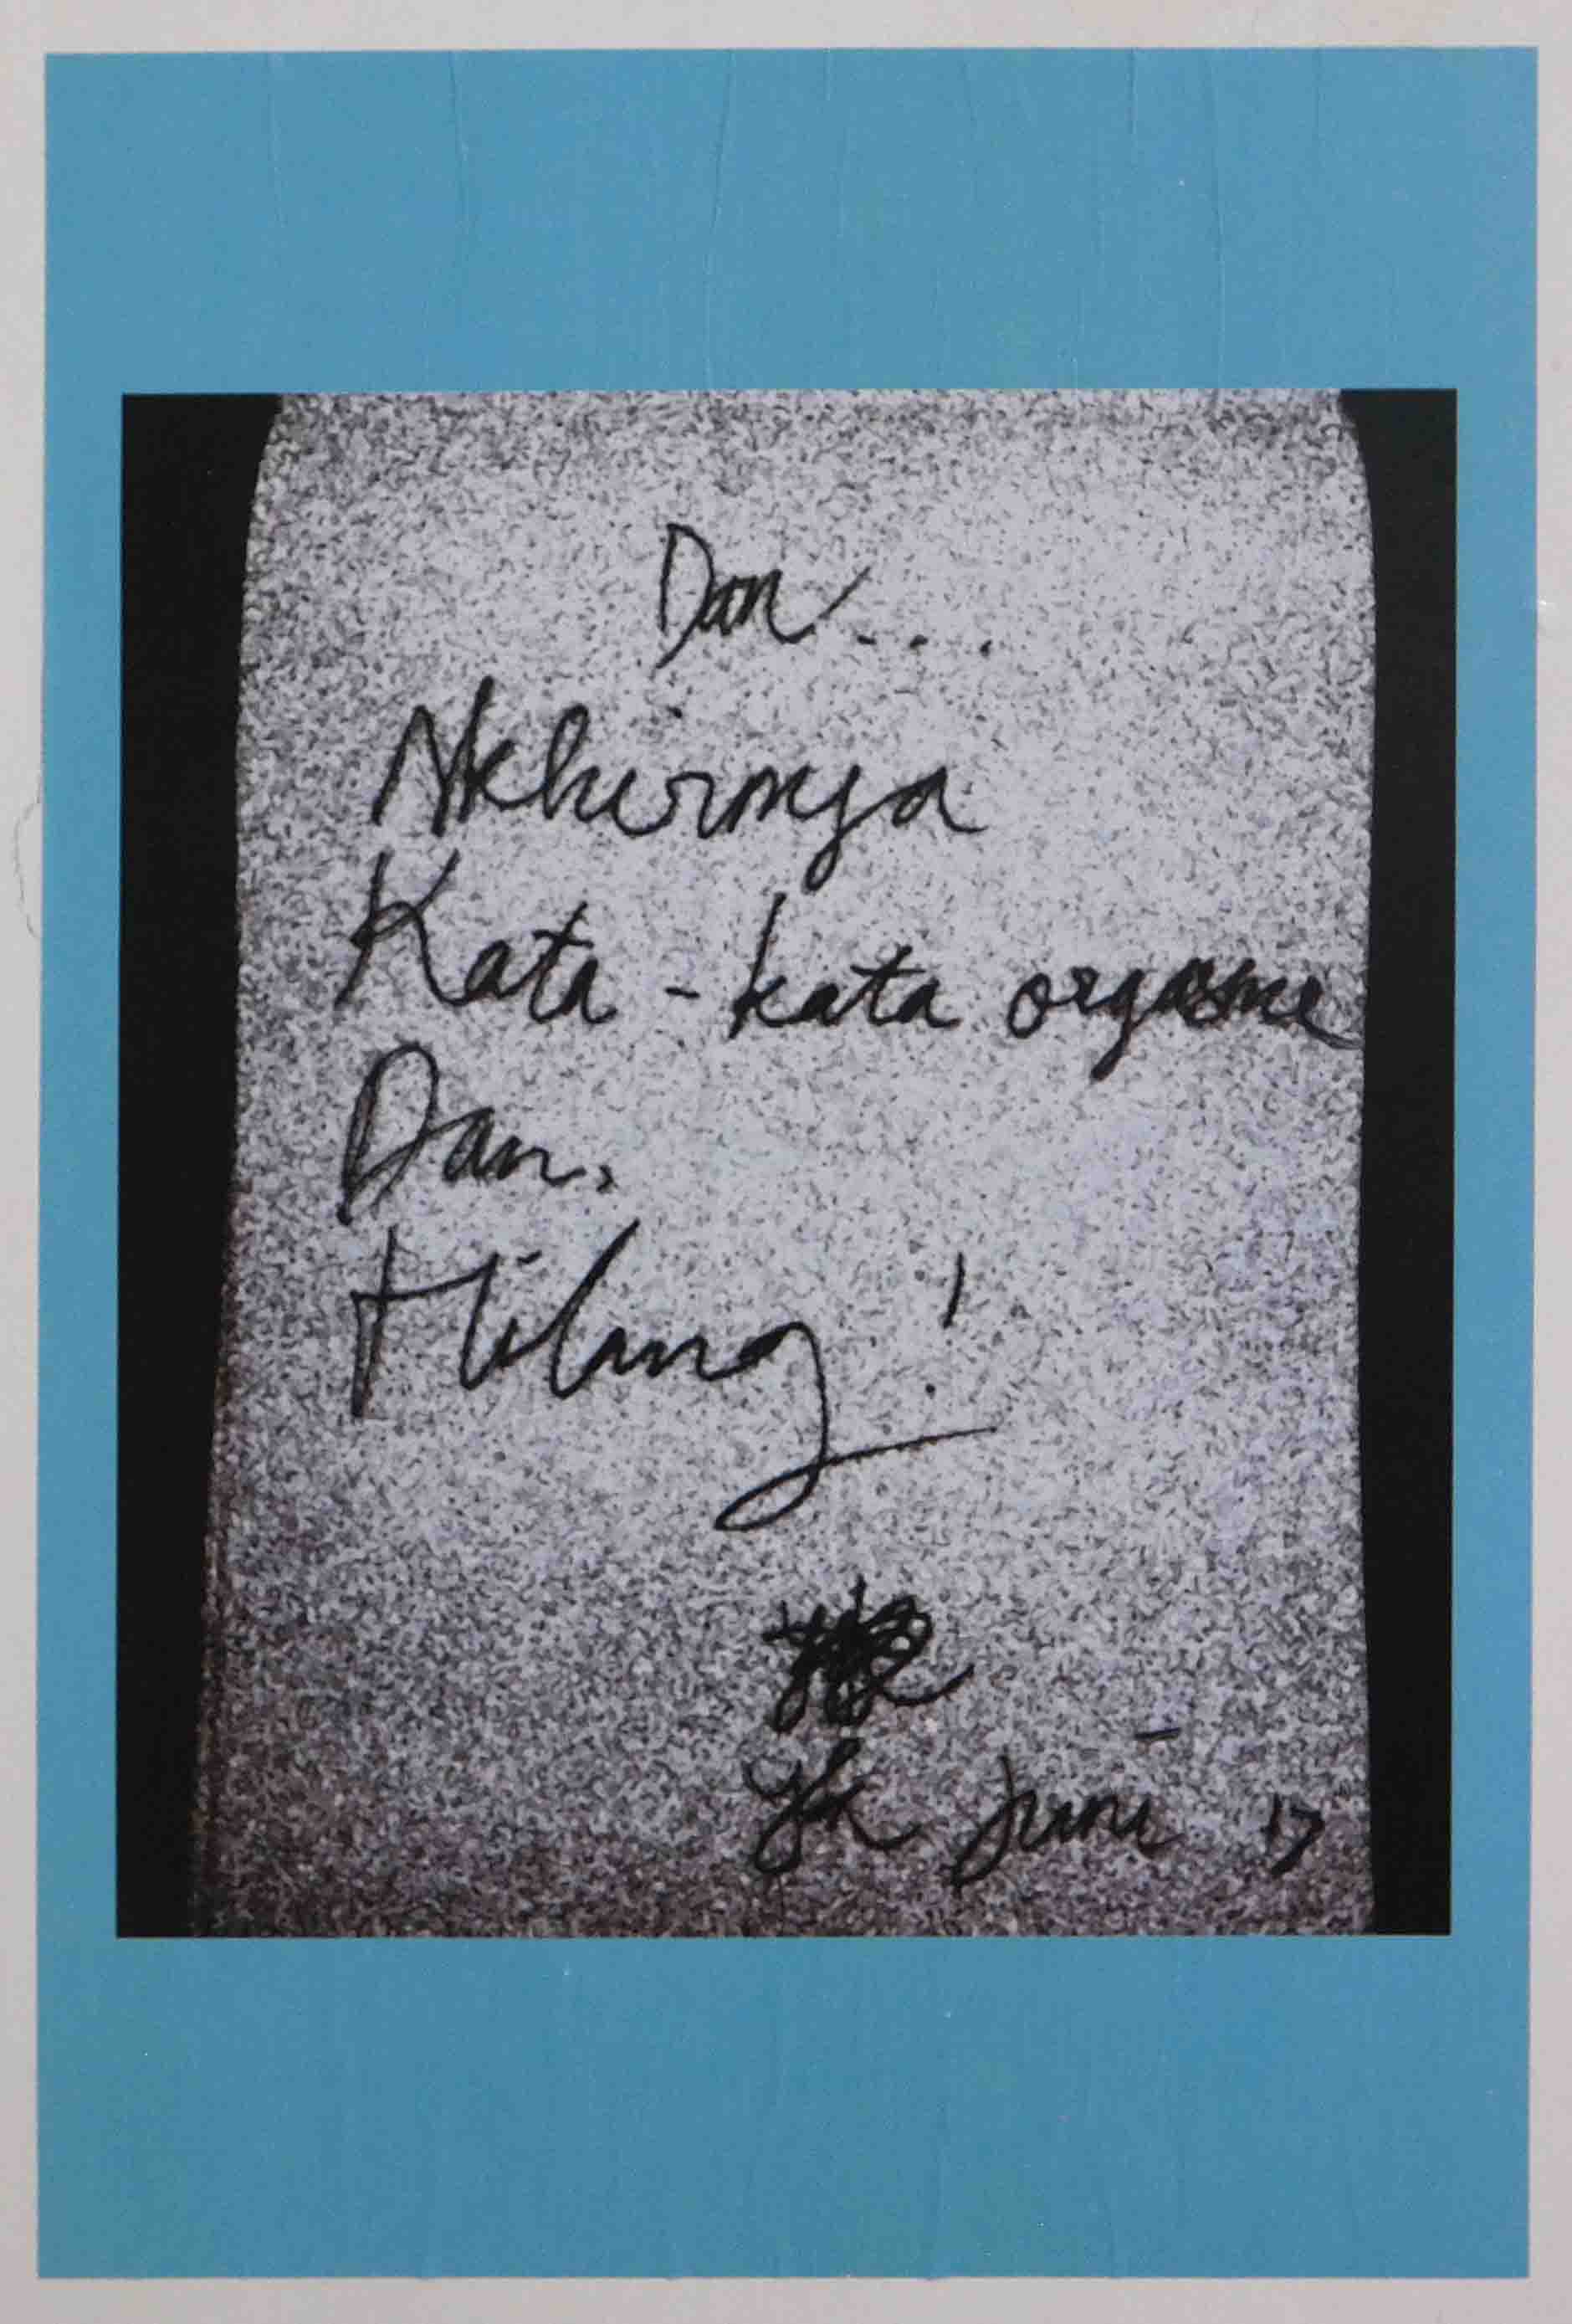 Dan....
Akhirnya
Kata-kata orgasme
Dan,
Hilang!
Yk juni 17